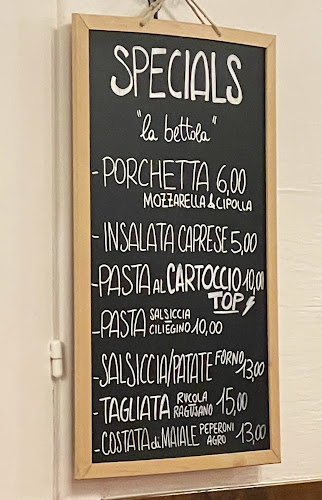 SPECIALS
"la bettola"
- PORCHETTA 6,00
MOZZARELLA & CIPOLLA
- INSALATA CAPRESE 5,00
- PASTA AL CARTOCCIO 10,00
TOP
- PASTA SALSICCIA CILIEGINO 10,00
- SALSICCIA/PATATE FORNO 13,00
- TAGLIATA RUCOLA RAGUSANO 15,00
- COSTATA di MAIALE PEPERONI AGRO 13,00